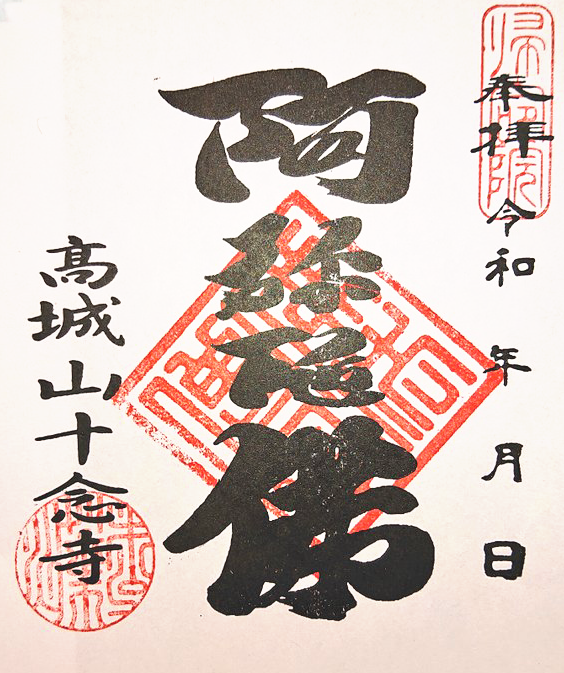 奉拝 令和 年 月 日
阿弥陀佛
高城山十念寺